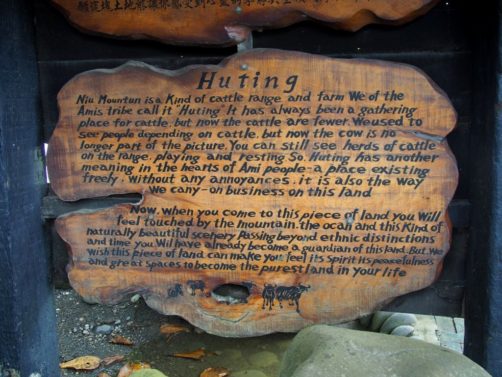 Huting
Niu Mountun is a Kind of cattle range and farm We of the
Amis tribe call it "Huting" It has always been a gathering
place for cattle, but now the cattle are fewer. We used to
see people depending on cattle, but now the cow is no
longer part of the picture. You can still see herds of cattle
on the range, playing and resting So, Huting has another
meaning in the hearts of Ami people-a place existing
freely, without any annoyances, it is also the way
we cany-on business on this land
Now, when you come to this piece of land, you Will
feel touched by the mountain, the ocan and this Kind of
naturally beautiful scenery Passing beyond ethnic distinctions
and time, you Wil have already become a guardian of this land. But, We
wish this piece of land can make you feel its Spirit its peacefulness
and great spaces to become the purest land in your life